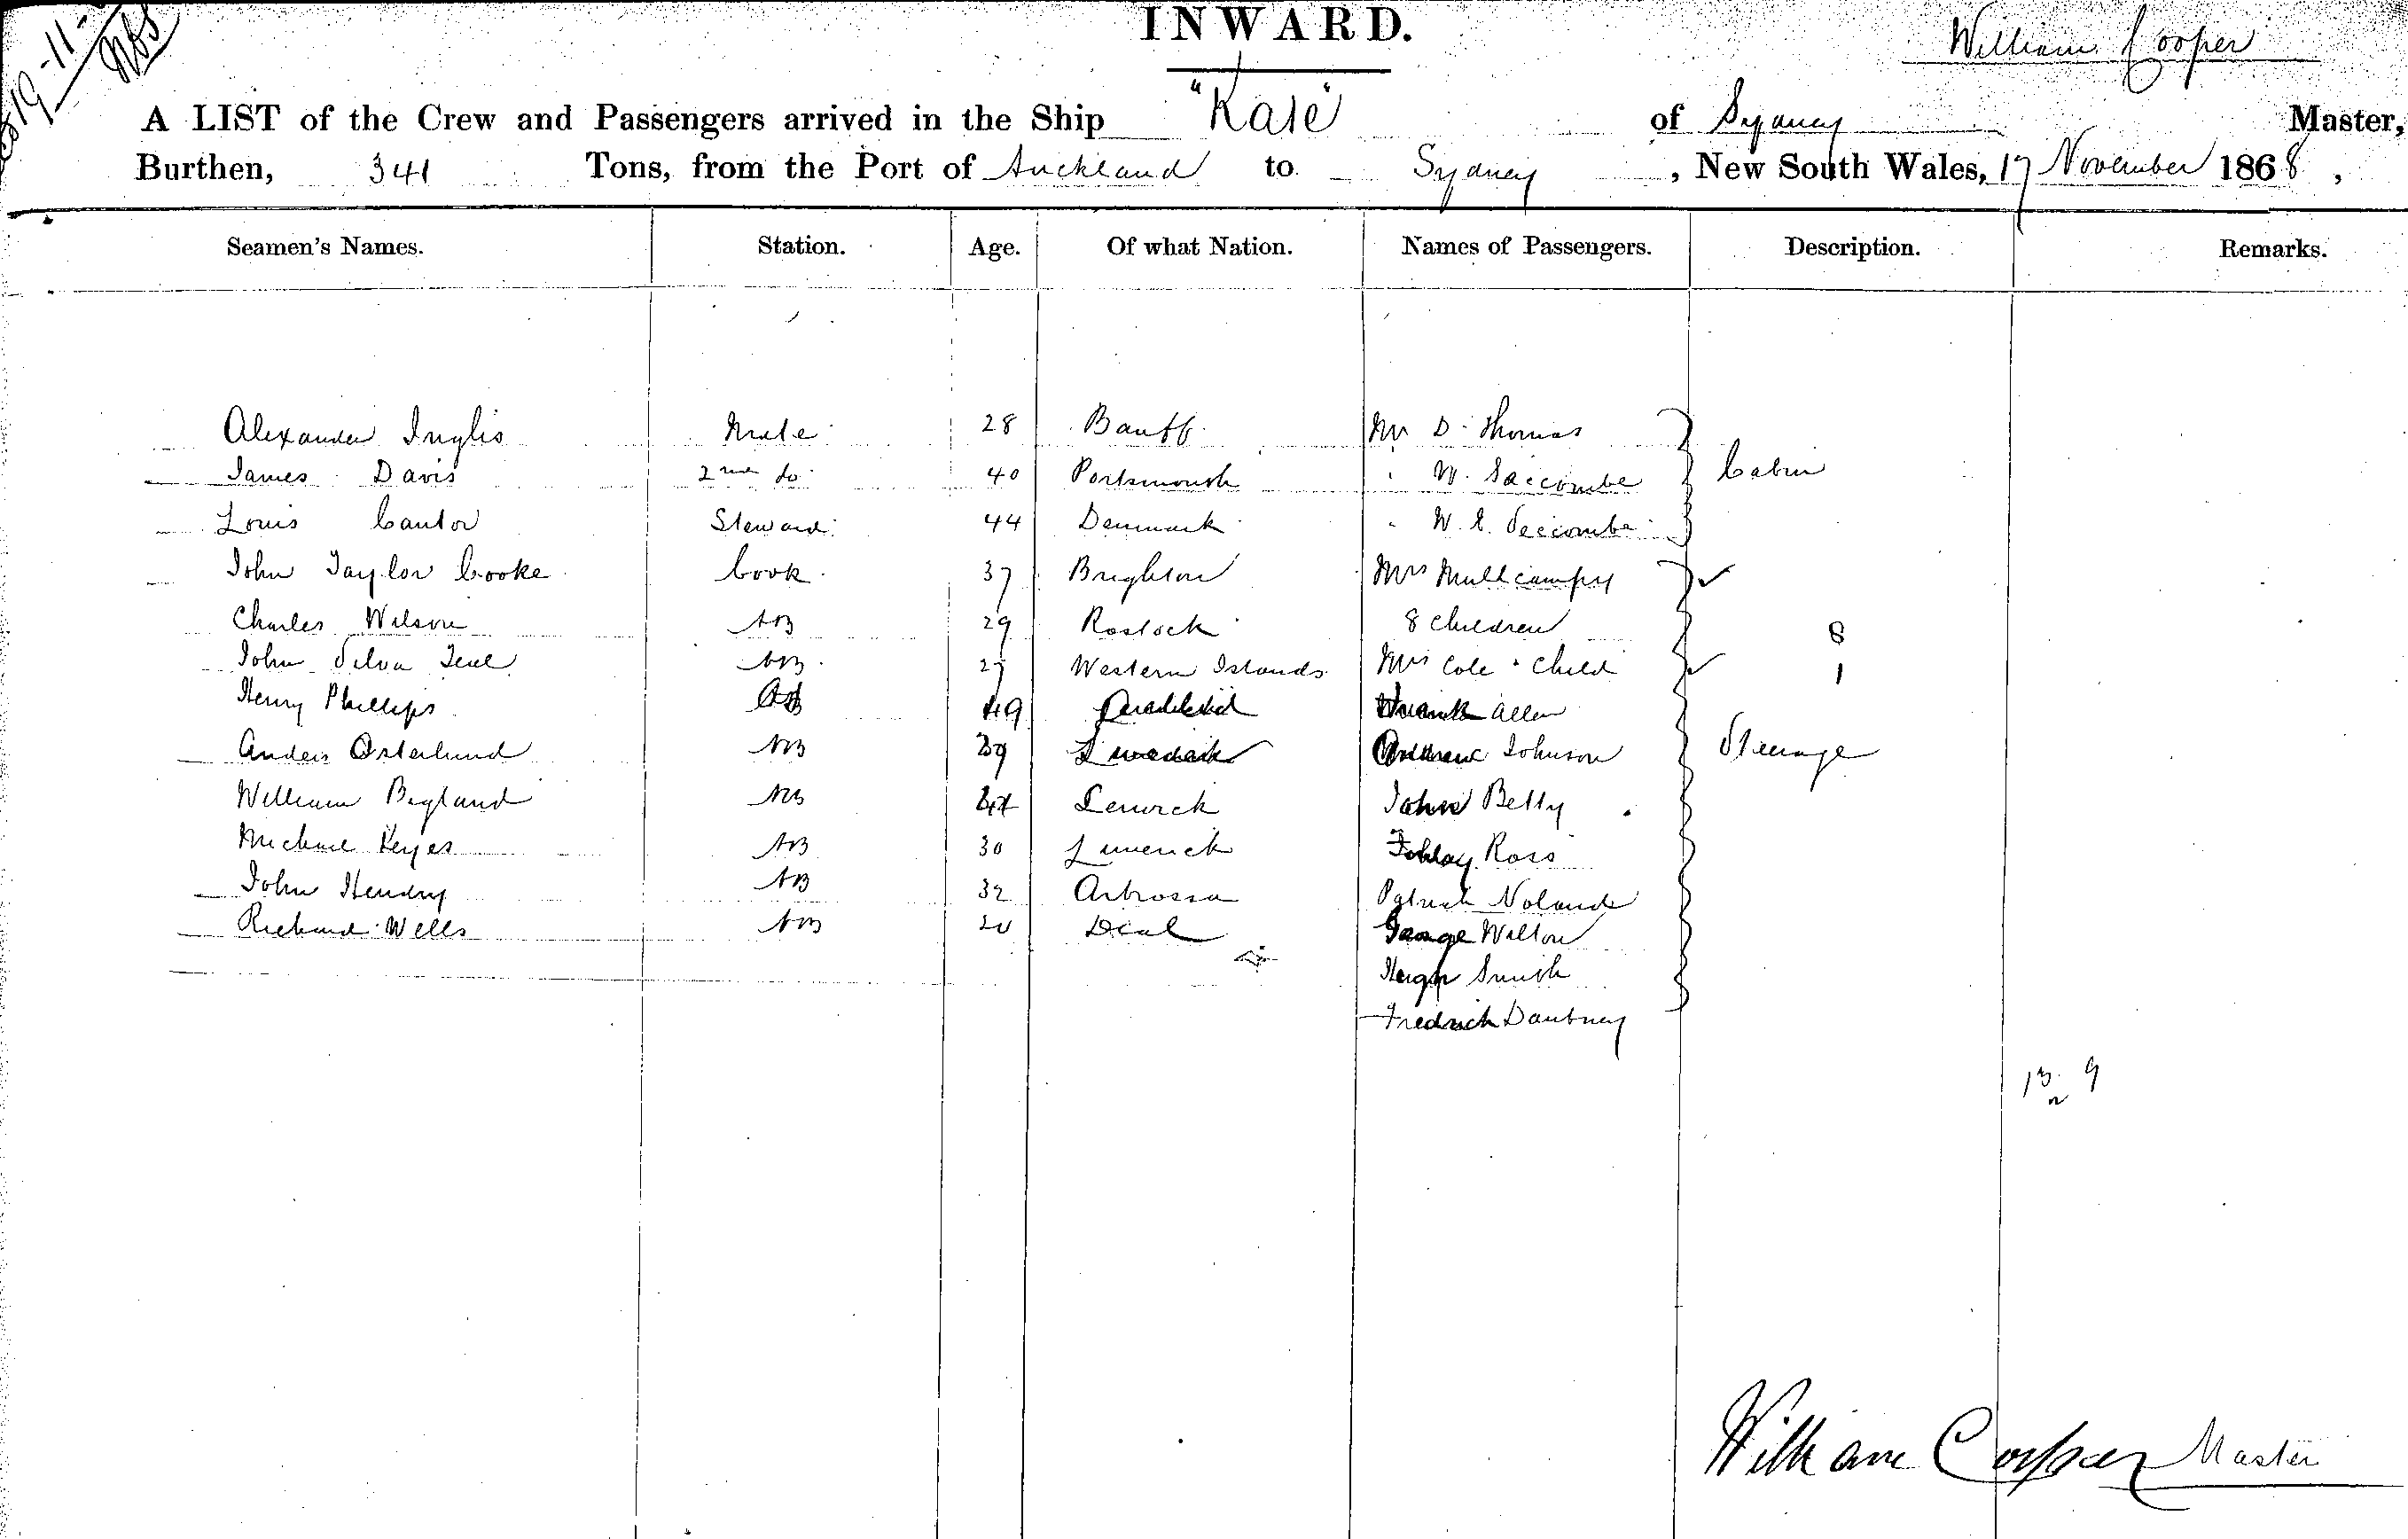 INWARD.
William Cooper
A LIST of the Crew and Passengers arrived in the Ship "Kate" of Sydney Master,
Burthen, 341 Tons, from the Port of Auckland to Sydney, New South Wales, 17 November 1868,
Seamen's Names. Station. Age. Of what Nation. Names of Passengers. Description. Remarks.
Alexander Inglis Mate 28 Banff Mr D. Thomas
James Davis 2nd do 40 Portsmouth " W. Saccombe Cabin
Louis Cantor Steward 44 Denmark " W. E. Seccombe
John Taylor Cooke Cook 37 Brighton Mrs
Charles Wilson AB 29 Rostock 8 children 8
John Silva AB 27 Western Islands Mrs Cole & Child 1
Henry Phillips AB 49 Allen
Anders Osterlund AB 39 Andrew Johnson Steerage
William Bigland AB Lerwick John Betty
Michael Keyes AB 30 Limerick Ross
John Hendry AB 32 Arbrossa Patrick Noland
Richard Wells AB 20 Deal George Wilton
Hugh Smith
Fredrick Daubney
13 9
William Cooper Master